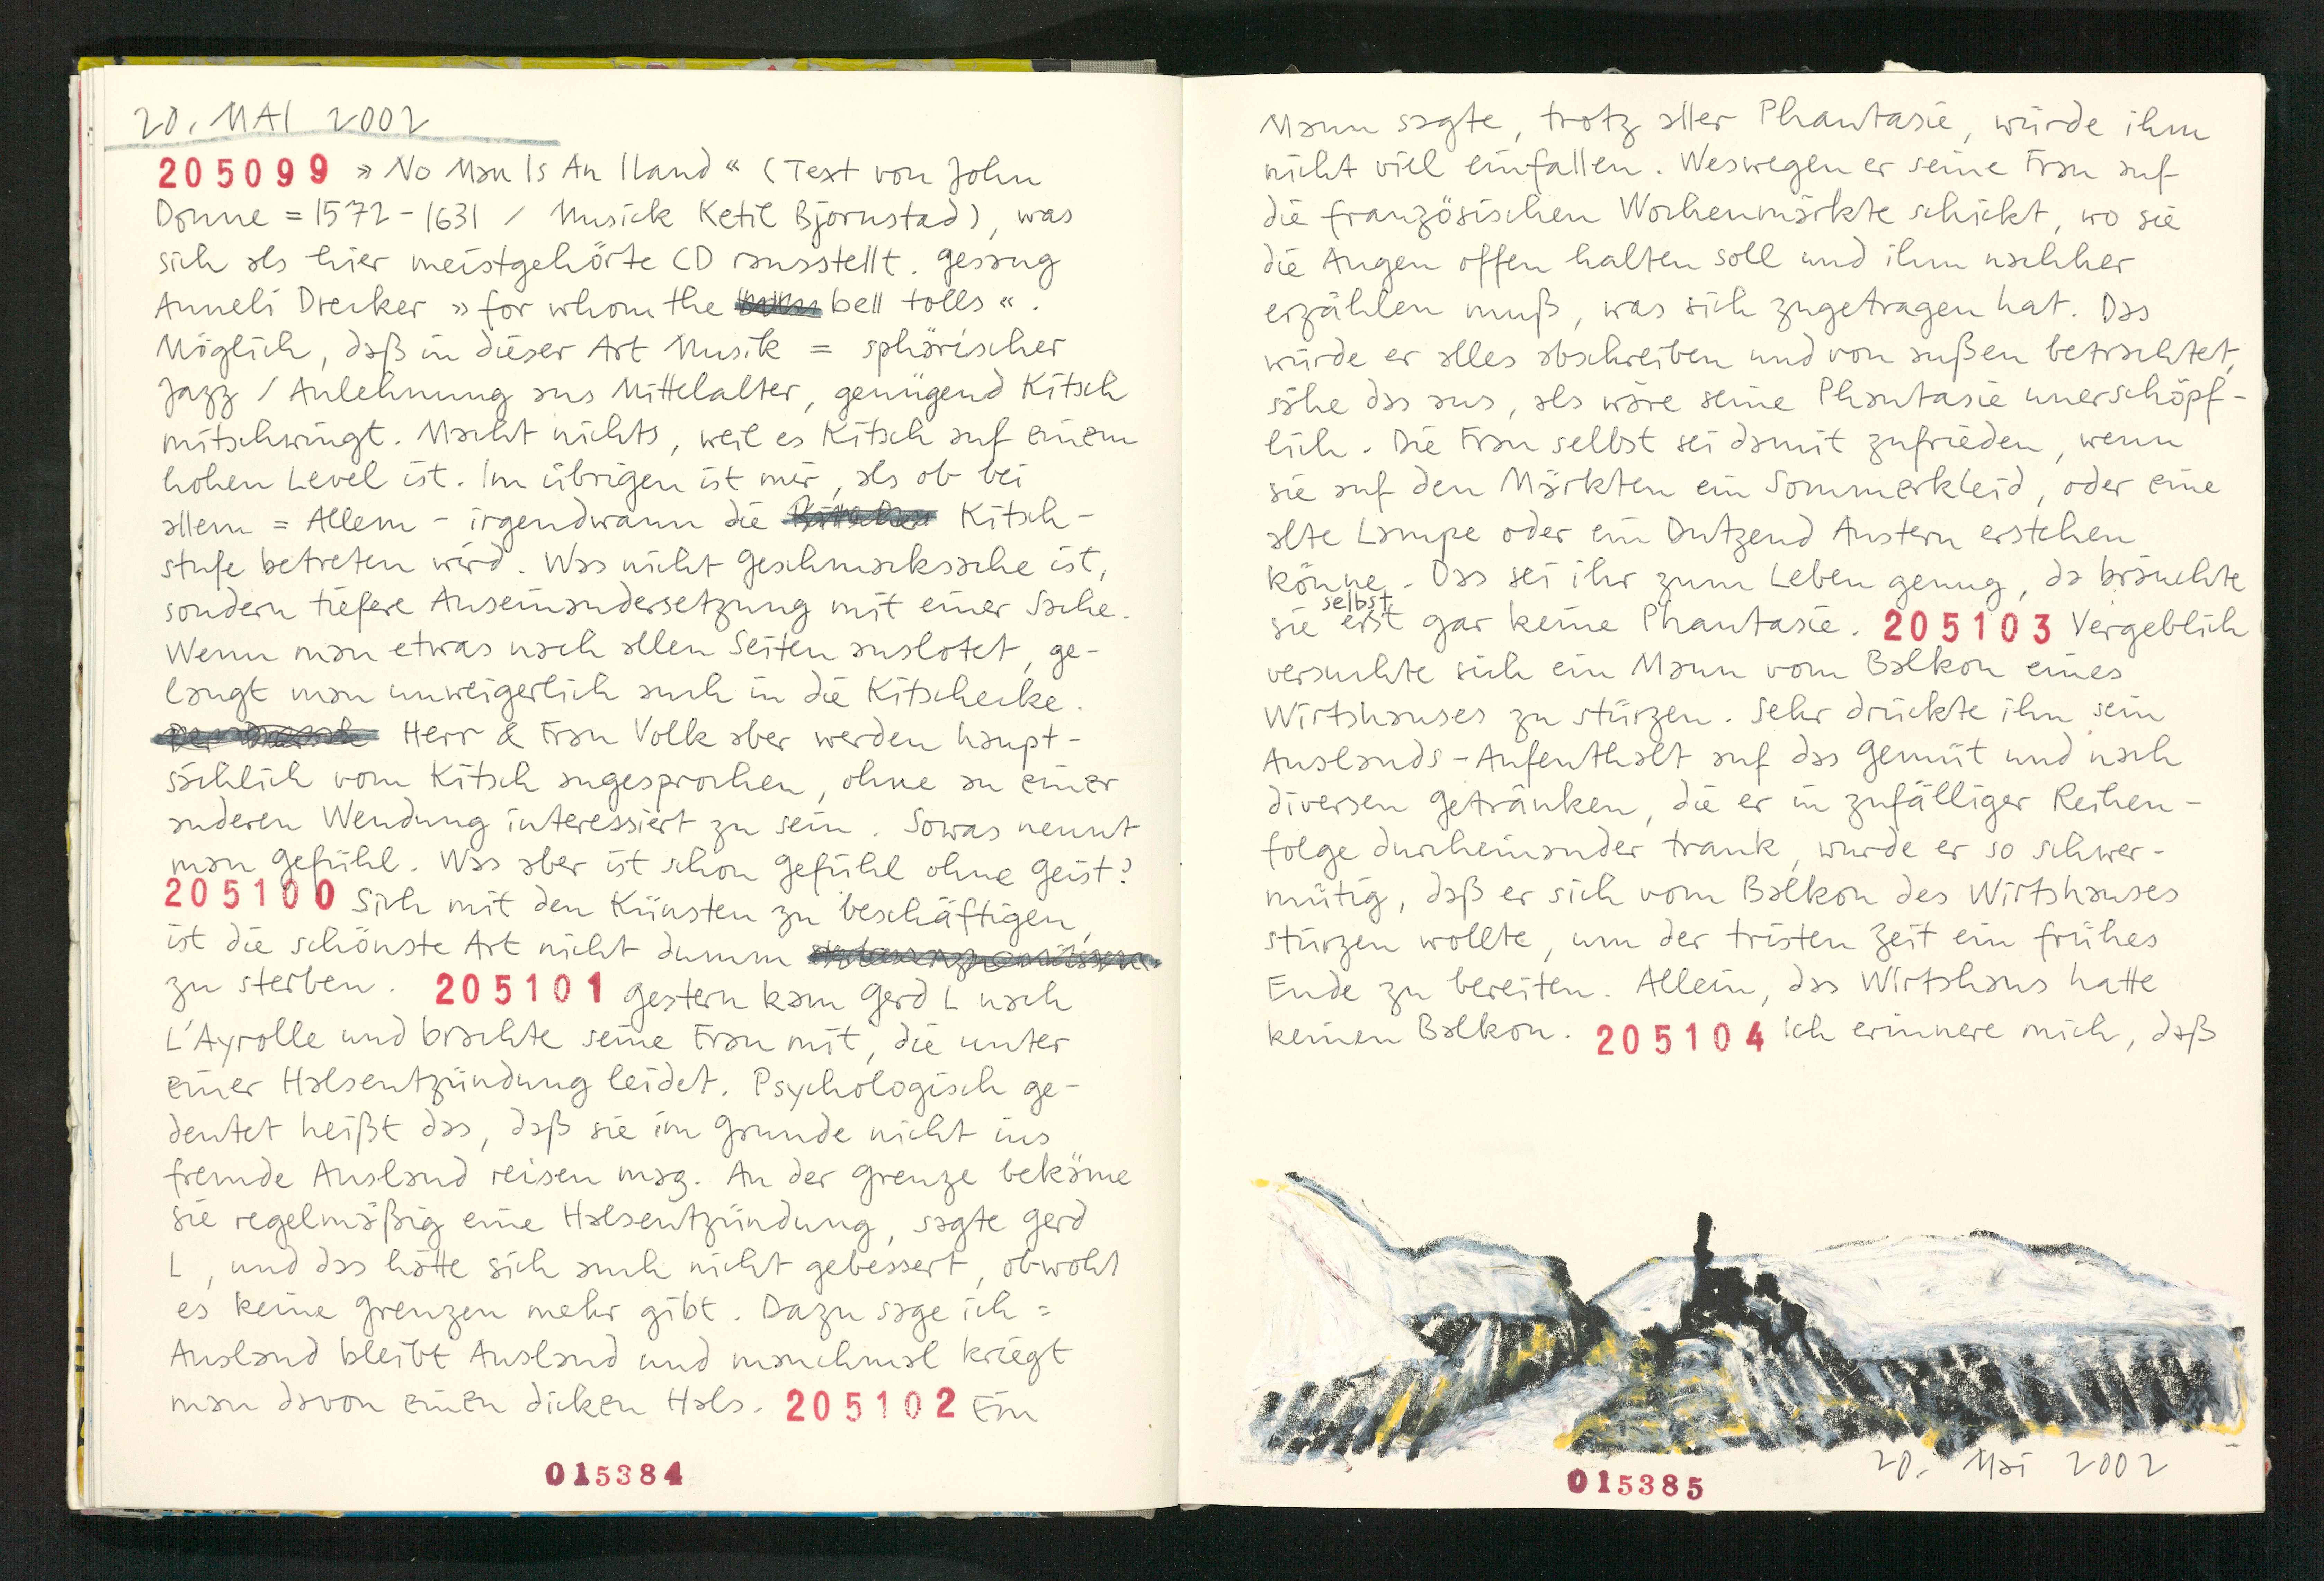 20. MAI 2002
205099 »No Man Is An Iland« (Text von John
Donne = 1572-1631 / Musick Ketil Bjornstad), was
sich als hier meistgehörte CD rausstellt. Gesang
Anneli Drecker »for whom the bell tolls«.
Möglich, daß in dieser Art Musik = sphärischer
Jazz / Anlehnung ans Mittelalter, genügend Kitsch
mitschwingt. Macht nichts, weil es Kitsch auf einem
hohen Level ist. Im übrigen ist mir, als ob bei
allem = Allem - irgendwann die Kitsch-
stufe betreten wird. Was nicht Geschmacksache ist,
sondern tiefere Auseinandersetzung mit einer Sache.
Wenn man etwas nach allen Seiten auslotet, ge-
langt man unweigerlich auch in die Kitschecke.
Herr & Frau Volk aber werden haupt-
sächlich vom Kitsch angesprochen, ohne an einer
anderen Wendung interessiert zu sein. Sowas nennt
man Gefühl. Was aber ist schon Gefühl ohne Geist?
205100 Sich mit den Künsten zu beschäftigen,
ist die schönste Art nicht dumm
zu sterben. 205101 Gestern kam Gerd L nach
L'Ayrolle und brachte seine Frau mit, die unter
einer Halsentzündung leidet. Psychologisch ge-
deutet heißt das, daß sie im Grunde nicht ins
fremde Ausland reisen mag. An der Grenze bekäme
sie regelmäßig eine Halsentzündung, sagte Gerd
L, und das hätte sich auch nicht gebessert, obwohl
es keine Grenzen mehr gibt. Dazu sage ich =
Ausland bleibt Ausland und manchmal kriegt
man davon einen dicken Hals. 205102 Ein
015384
Mann sagte, trotz aller Phantasie, würde ihm
nicht viel einfallen. Weswegen er seine Frau auf
die französischen Wochenmärkte schickt, wo sie
die Augen offen halten soll und ihm nachher
erzählen muß, was sich zugetragen hat. Das
würde er alles abschreiben und von außen betrachtet,
sähe das aus, als wäre seine Phantasie unerschöpf-
lich. Die Frau selbst sei damit zufrieden, wenn
sie auf den Märkten ein Sommerkleid, oder eine
alte Lampe oder ein Dutzend Austern erstehen
könne. Das sei ihr zum Leben genug, da bräuchte
sie selbst erst gar keine Phantasie. 205103 Vergeblich
versuchte sich ein Mann vom Balkon eines
Wirtshauses zu stürzen. Sehr drückte ihm sein
Auslands-Aufenthalt auf das Gemüt und nach
diversen Getränken, die er in zufälliger Reihen-
folge durcheinander trank, wurde er so schwer-
mütig, daß er sich vom Balkon des Wirtshauses
stürzen wollte, um der tristen Zeit ein frühes
Ende zu bereiten. Allein, das Wirtshaus hatte
keinen Balkon. 205104 Ich erinnere mich, daß
20. Mai 2002
015385